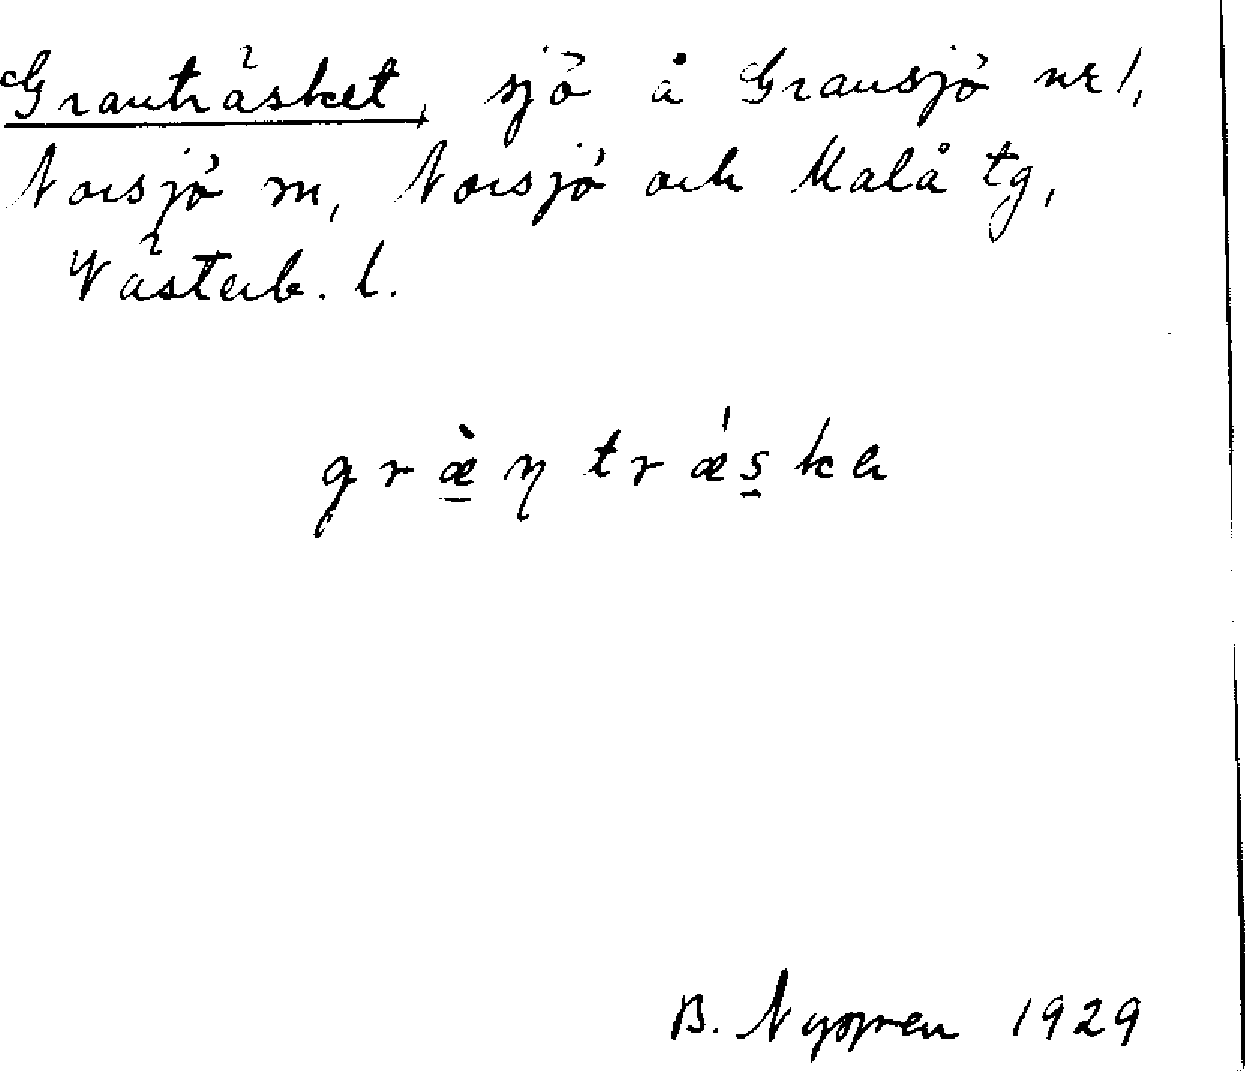 Granträsket, sjö å Gransjö nr 1,
Norsjö sn, Norsjö och Malå tg,
Västerb. l.
græ̀ntrǽska
B. Nygren 1929